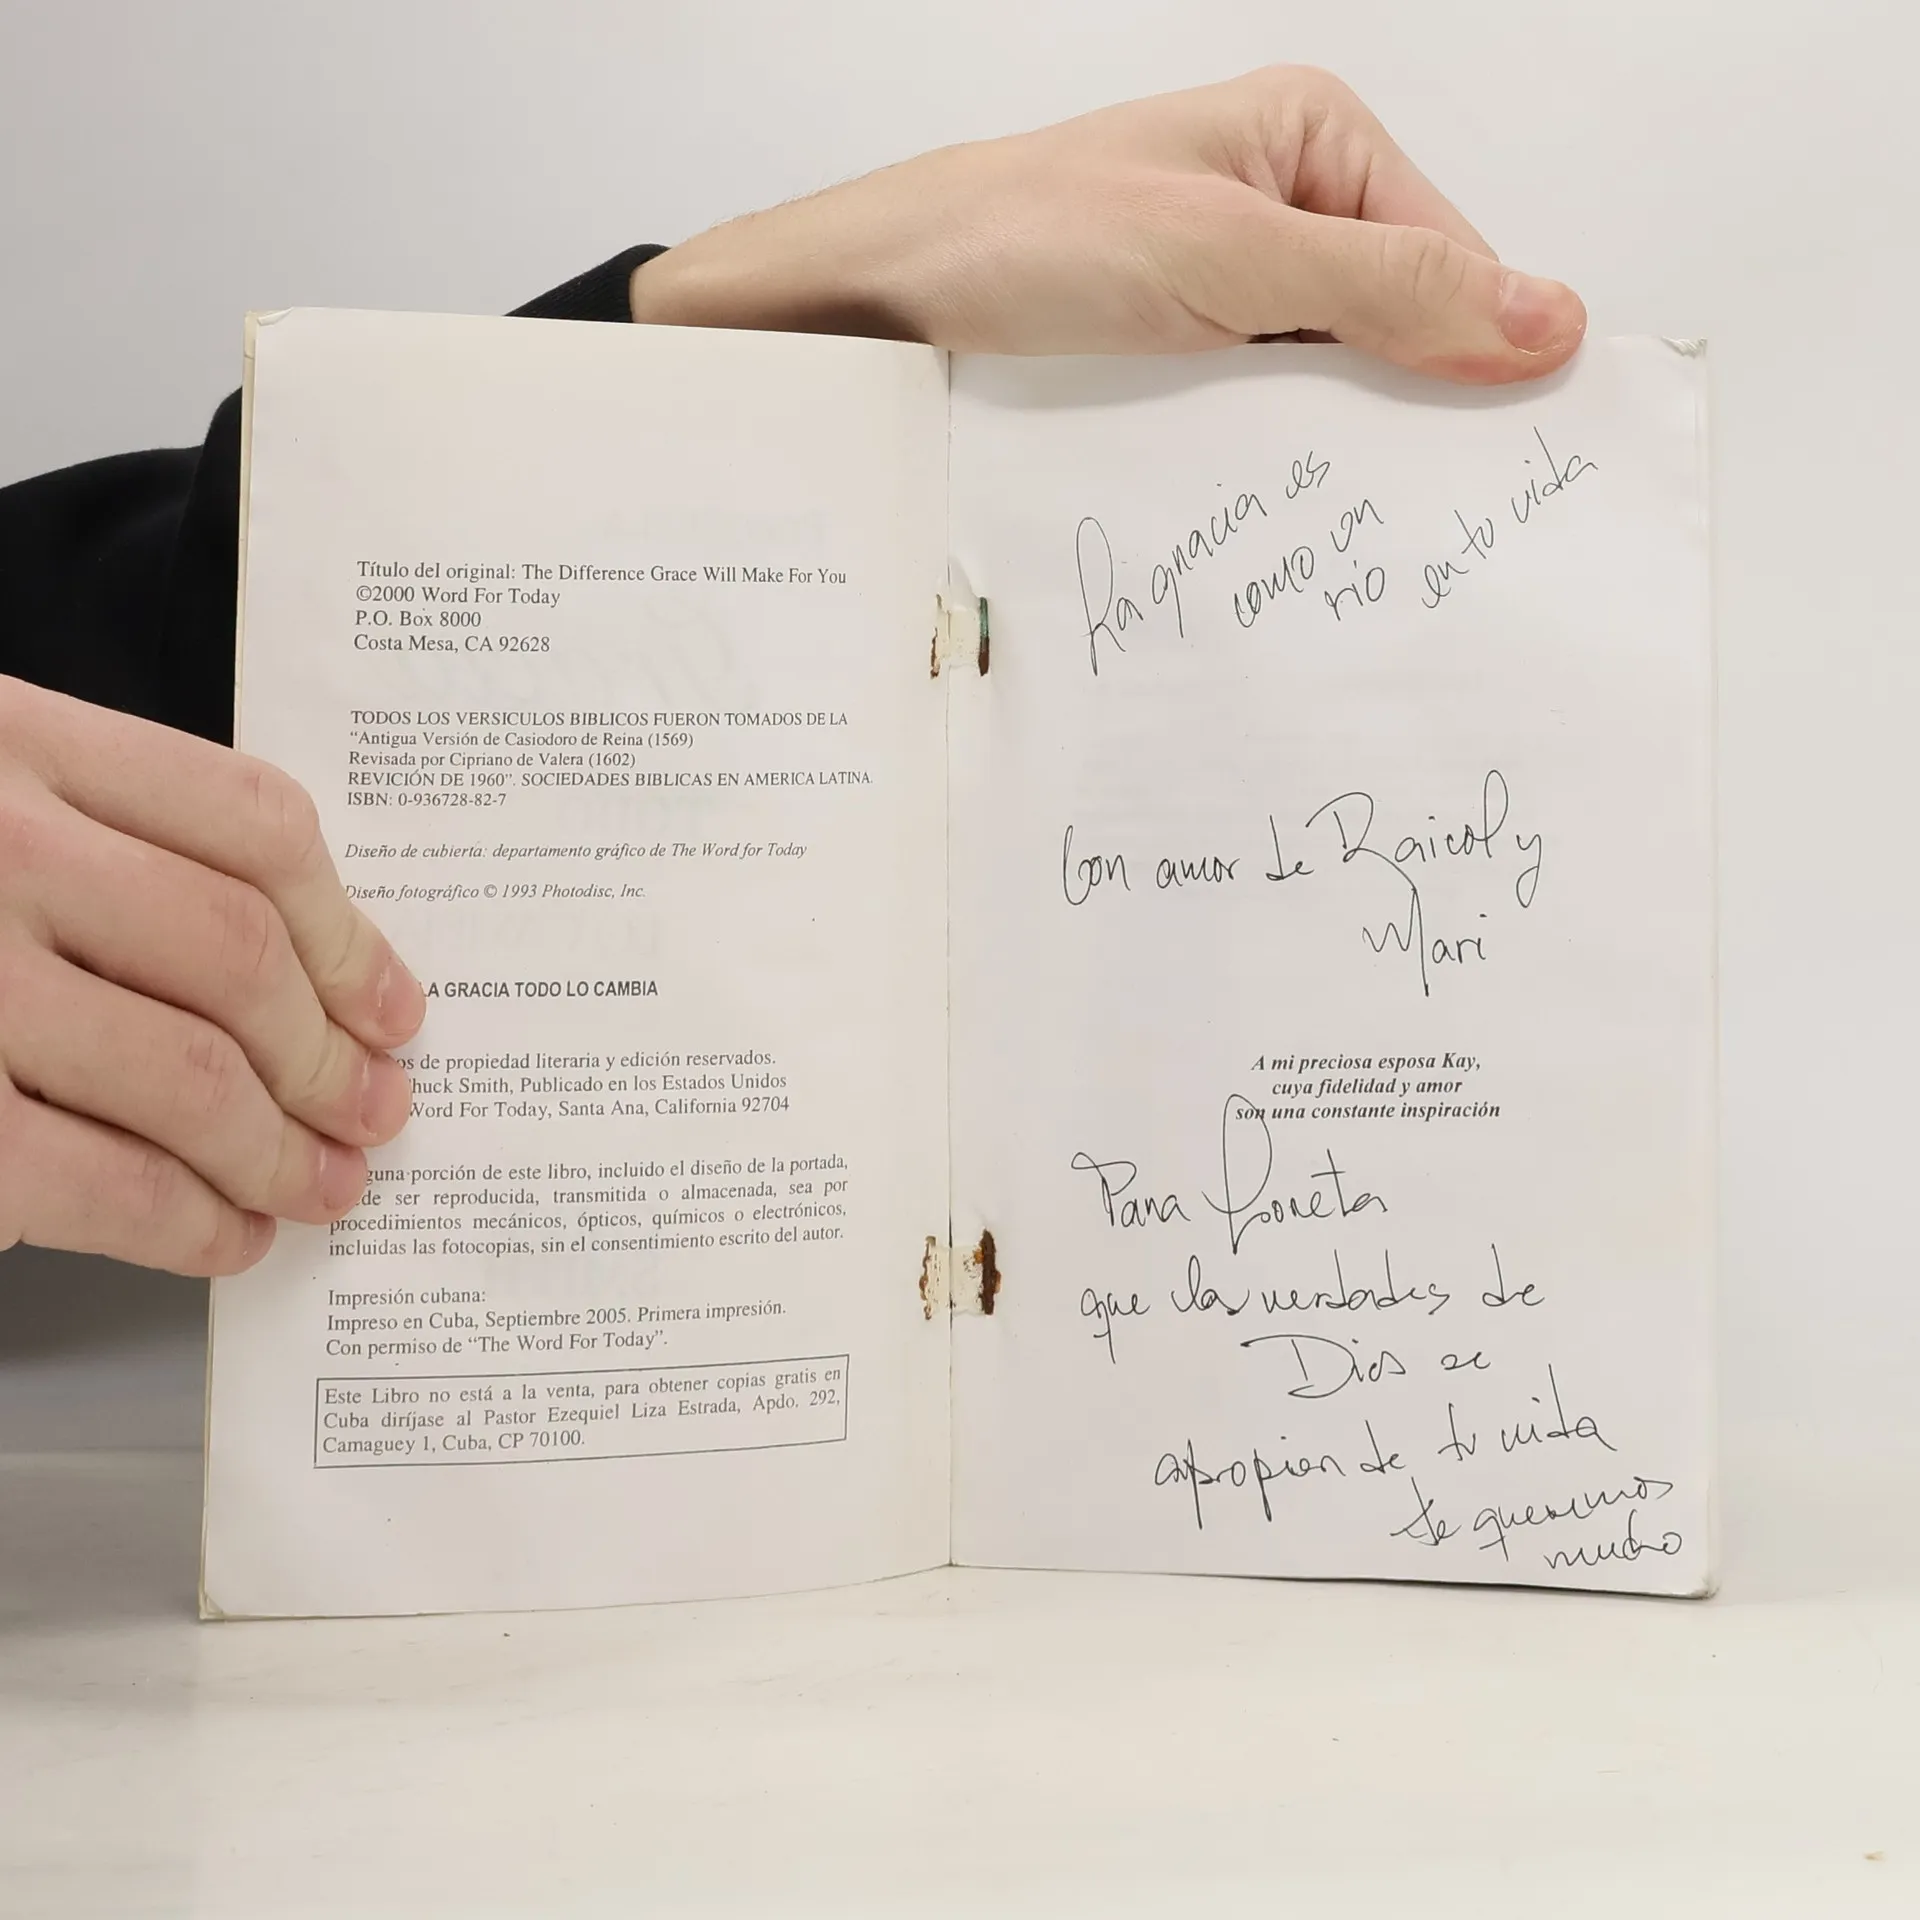 Título del original: The Difference Grace Will Make For You
©2000 Word For Today
P.O. Box 8000
Costa Mesa, CA 92628
TODOS LOS VERSICULOS BIBLICOS FUERON TOMADOS DE LA
“Antigua Versión de Casiodoro de Reina (1569)
Revisada por Cipriano de Valera (1602)
REVICIÓN DE 1960”. SOCIEDADES BIBLICAS EN AMERICA LATINA.
ISBN: 0-936728-82-7
Diseño de cubierta: departamento gráfico de The Word for Today
Diseño fotográfico © 1993 Photodisc, Inc.
LA GRACIA TODO LO CAMBIA
os de propiedad literaria y edición reservados.
huck Smith, Publicado en los Estados Unidos
Word For Today, Santa Ana, California 92704
guna porción de este libro, incluido el diseño de la portada,
de ser reproducida, transmitida o almacenada, sea por
procedimientos mecánicos, ópticos, químicos o electrónicos,
incluidas las fotocopias, sin el consentimiento escrito del autor.
Impresión cubana:
Impreso en Cuba, Septiembre 2005. Primera impresión.
Con permiso de “The Word For Today”.
Este Libro no está a la venta, para obtener copias gratis en
Cuba diríjase al Pastor Ezequiel Liza Estrada, Apdo. 292,
Camaguey 1, Cuba, CP 70100.
La gracia es
como un
rio en tu vida
Con amor de Raicol y
Mari
A mi preciosa esposa Kay,
cuya fidelidad y amor
son una constante inspiración
Para Loreta
que las verdades de
Dios se
apropien de tu vida
te queremos
mucho